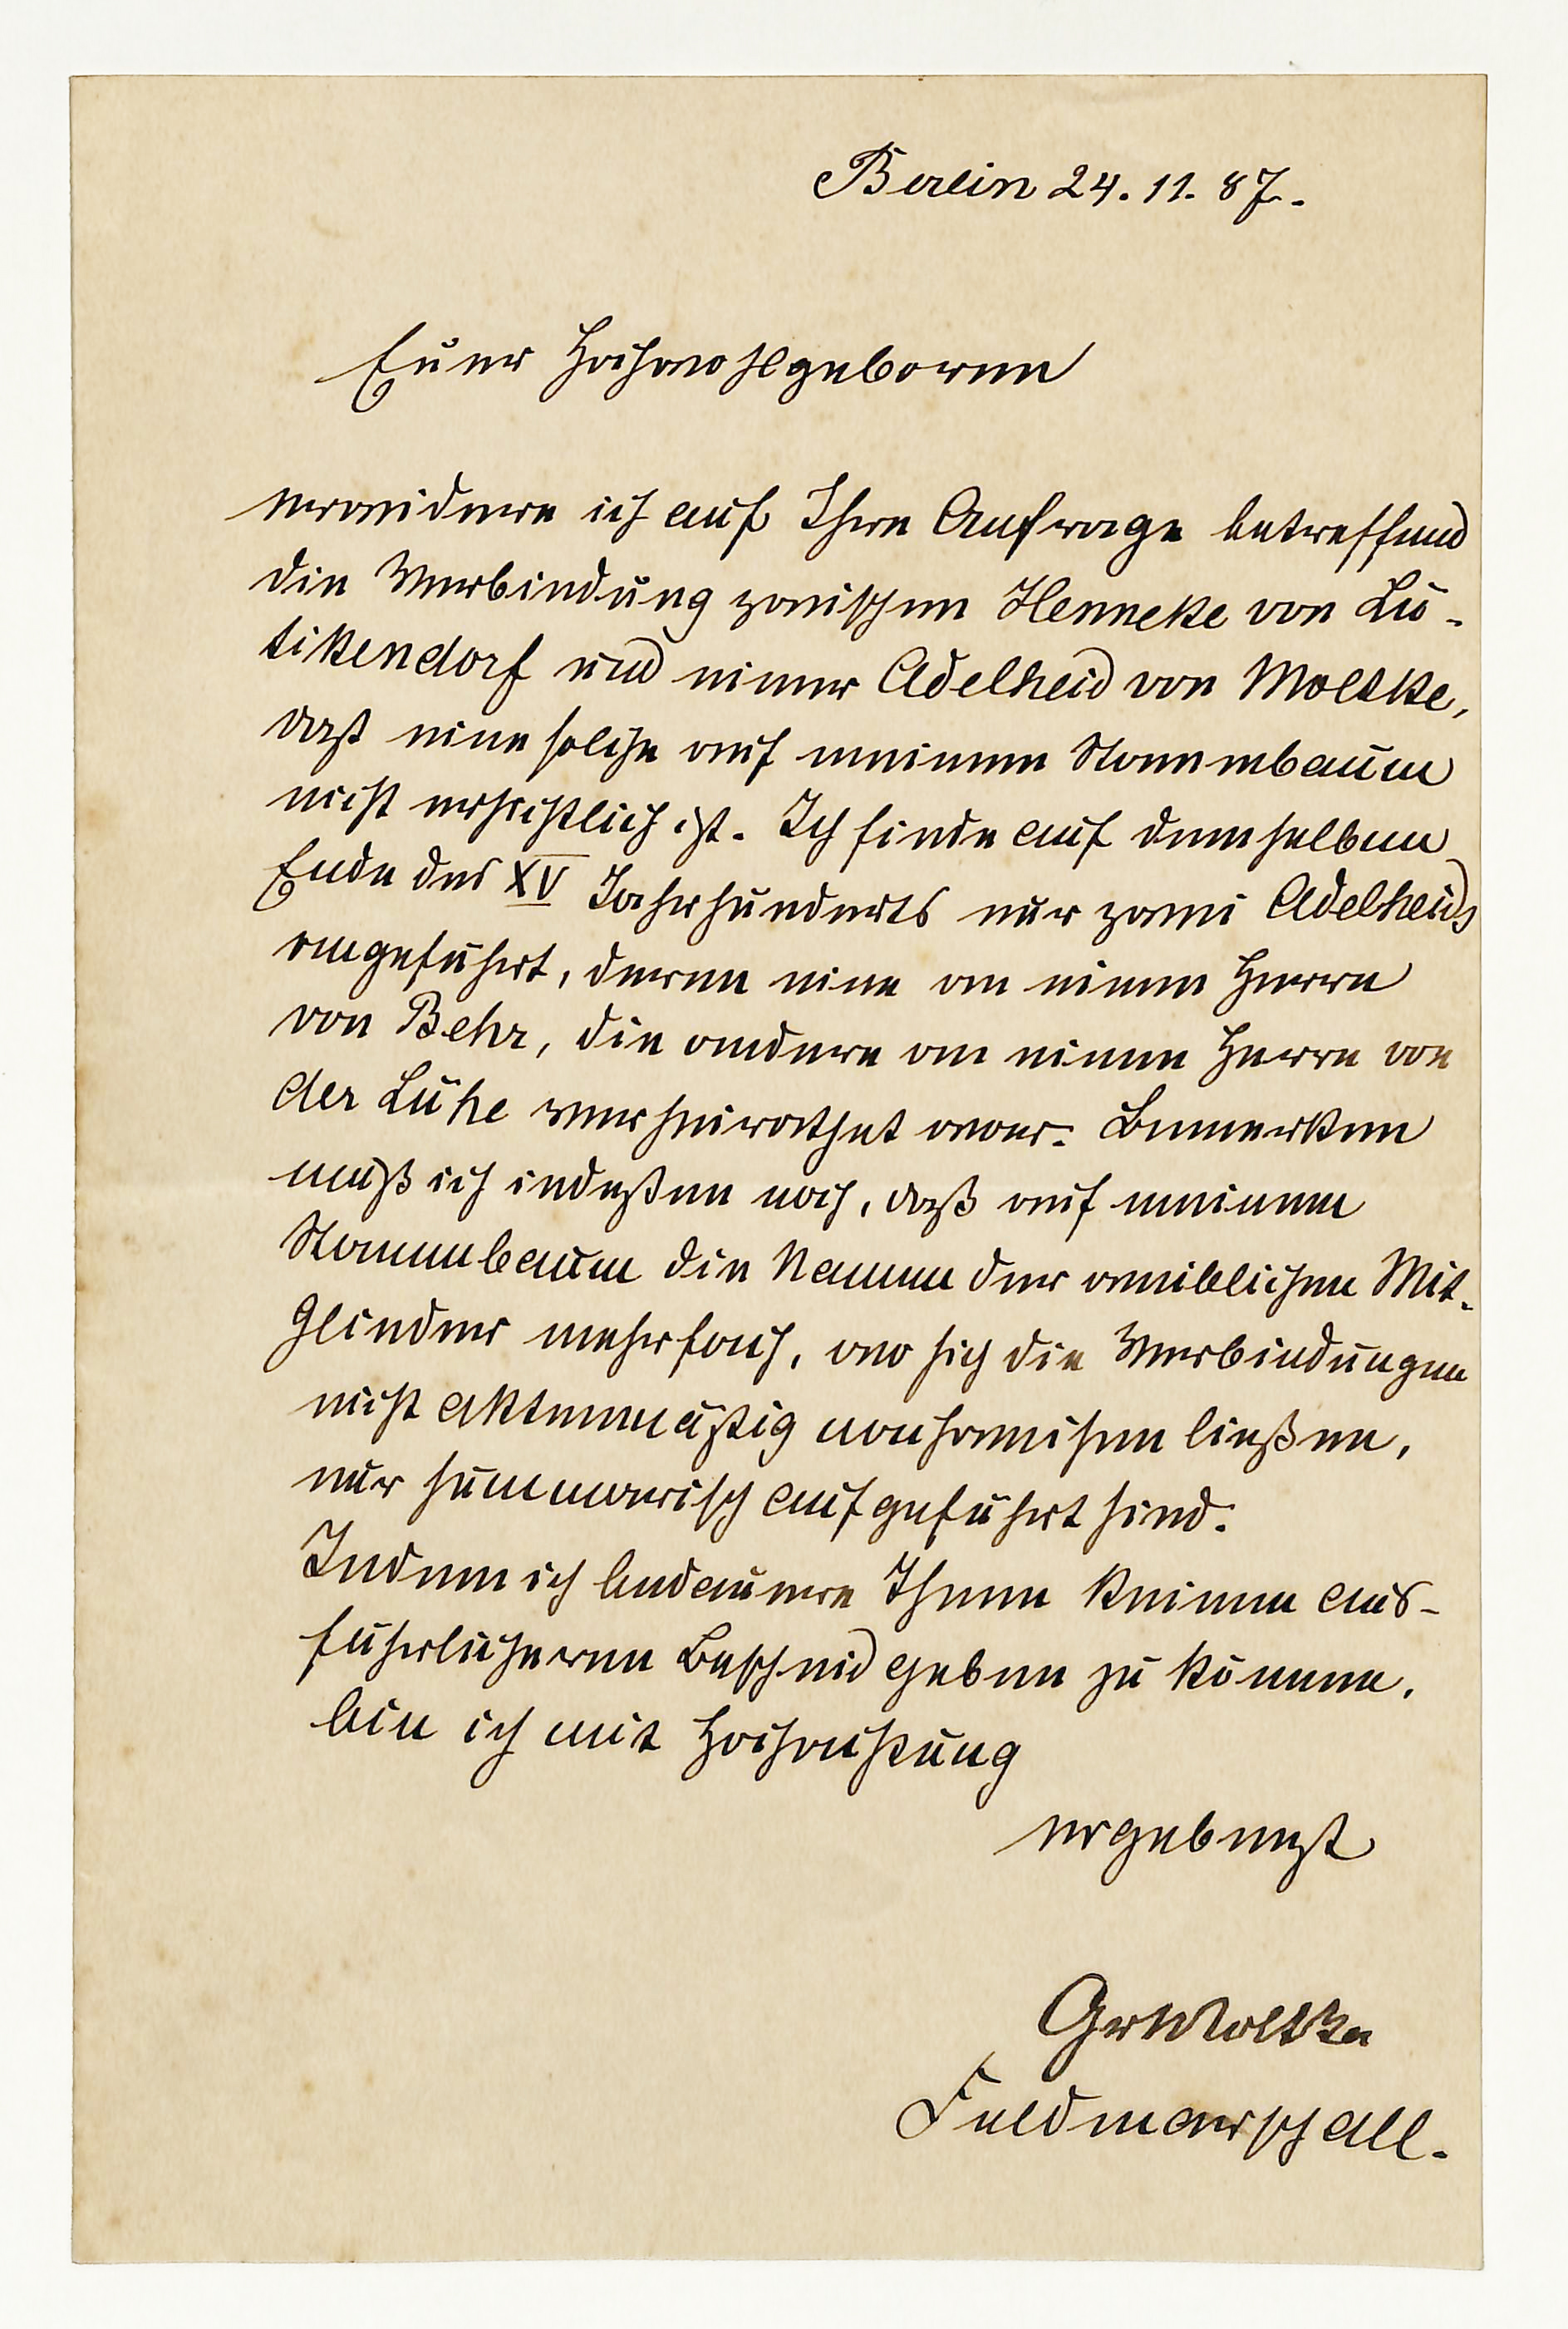 Berlin 24. 11. 87.
Euer Hochwohlgeboren
erwidere ich auf Ihre Anfrage betreffend
die Verbindung zwischen Henneke von Lü-
tikendorf und einer Adelheid von Moltke,
daß eine solche auf meinem Stammbaum
nicht ersichtlich ist. Ich finde auf demselben
Ende des XV Jahrhunderts nur zwei Adelheids
angeführt, deren eine an einen Herrn
von Behr, die andere an einen Herrn von
der Lühe verheirathet war. Bemerken
muß ich indeßen noch, daß auf meinem
Stammbaum die Namen der weiblichen Mit-
glieder mehrfach, wo sich die Verbindungen
nicht aktenmäßig nachweisen ließen,
nur summarisch aufgeführt sind.
Indem ich bedauere Ihnen keinen aus-
führlicheren Bescheid geben zu können,
bin ich mit Hochachtung
ergebenst
Gr Moltke
Feldmarschall.